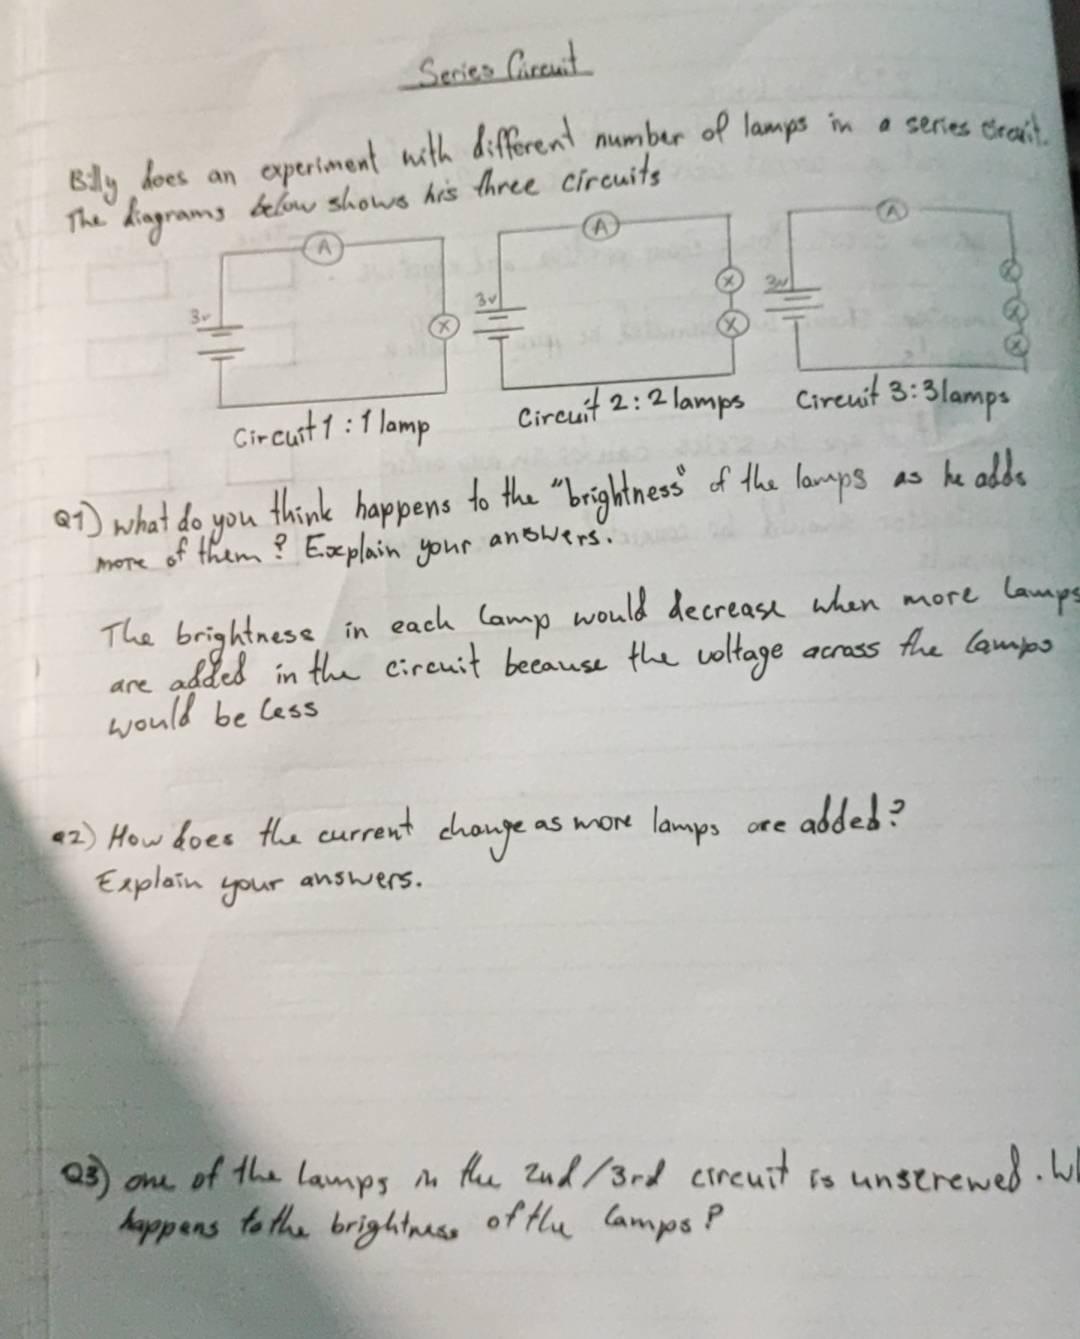 Series Circuit
Billy does an experiment with different number of lamps in a series circuit.
The diagrams below shows his three circuits
A A A
3v 3v 3v
X X X X X X
Circuit 1 : 1 lamp Circuit 2 : 2 lamps Circuit 3 : 3 lamps
Q1) what do you think happens to the "brightness" of the lamps as he adds
more of them ? Explain your answers.
The brightness in each lamp would decrease when more lamps
are added in the circuit because the voltage across the lamps
would be less
Q2) How does the current change as more lamps are added?
Explain your answers.
Q3) one of the lamps in the 2nd/3rd circuit is unscrewed.
happens to the brightness of the lamps?